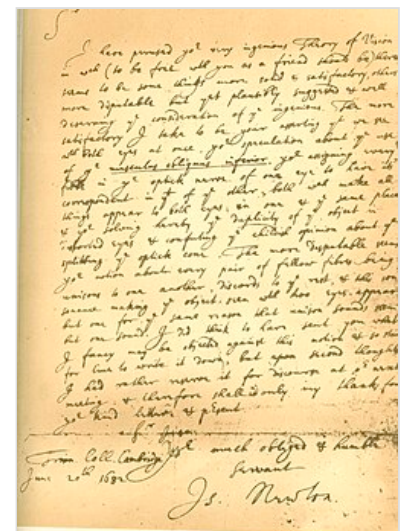 Sr
I have perused yor very ingenious Theory of Vision
in wch (to be free with you as a friend should be) there
seems to be some things more solid & satisfactory, others
more disputable but yet plausibly suggested & well
deserving ye consideration of ye ingenious. The more
satisfactory I take to be your asserting yt we see
with both eyes at once, yor speculation about ye use
of ye musculus obliquus inferior, yor assigning every
fibre in ye optick nerve of one eye to have its
correspondent in yt of ye other, both wch make all
things appear to both eyes in one & ye same place
& yor solving hereby ye duplicity of ye object in
distorted eyes & confuting ye childish opinion about ye
splitting ye optick cone. The more disputable seems
yor notion about every pair of fellow fibres being
unisons to one another, discords to ye rest, & this con
sonance making ye object seen with two eyes appear
but one for ye same reason that unison sounds seem
but one sound. I did think to have sent you what
I fancy may be objected against this notion & so
for time to write it down, but upon second thoughts
I had rather reserve it for discourse at or next
meeting & therefore shall only my thanks for
yor kind letter & present.
Sr
Trin. Coll. Cambridge yor much obliged & humble
June 20th 1682 Servant
Is. Newton.